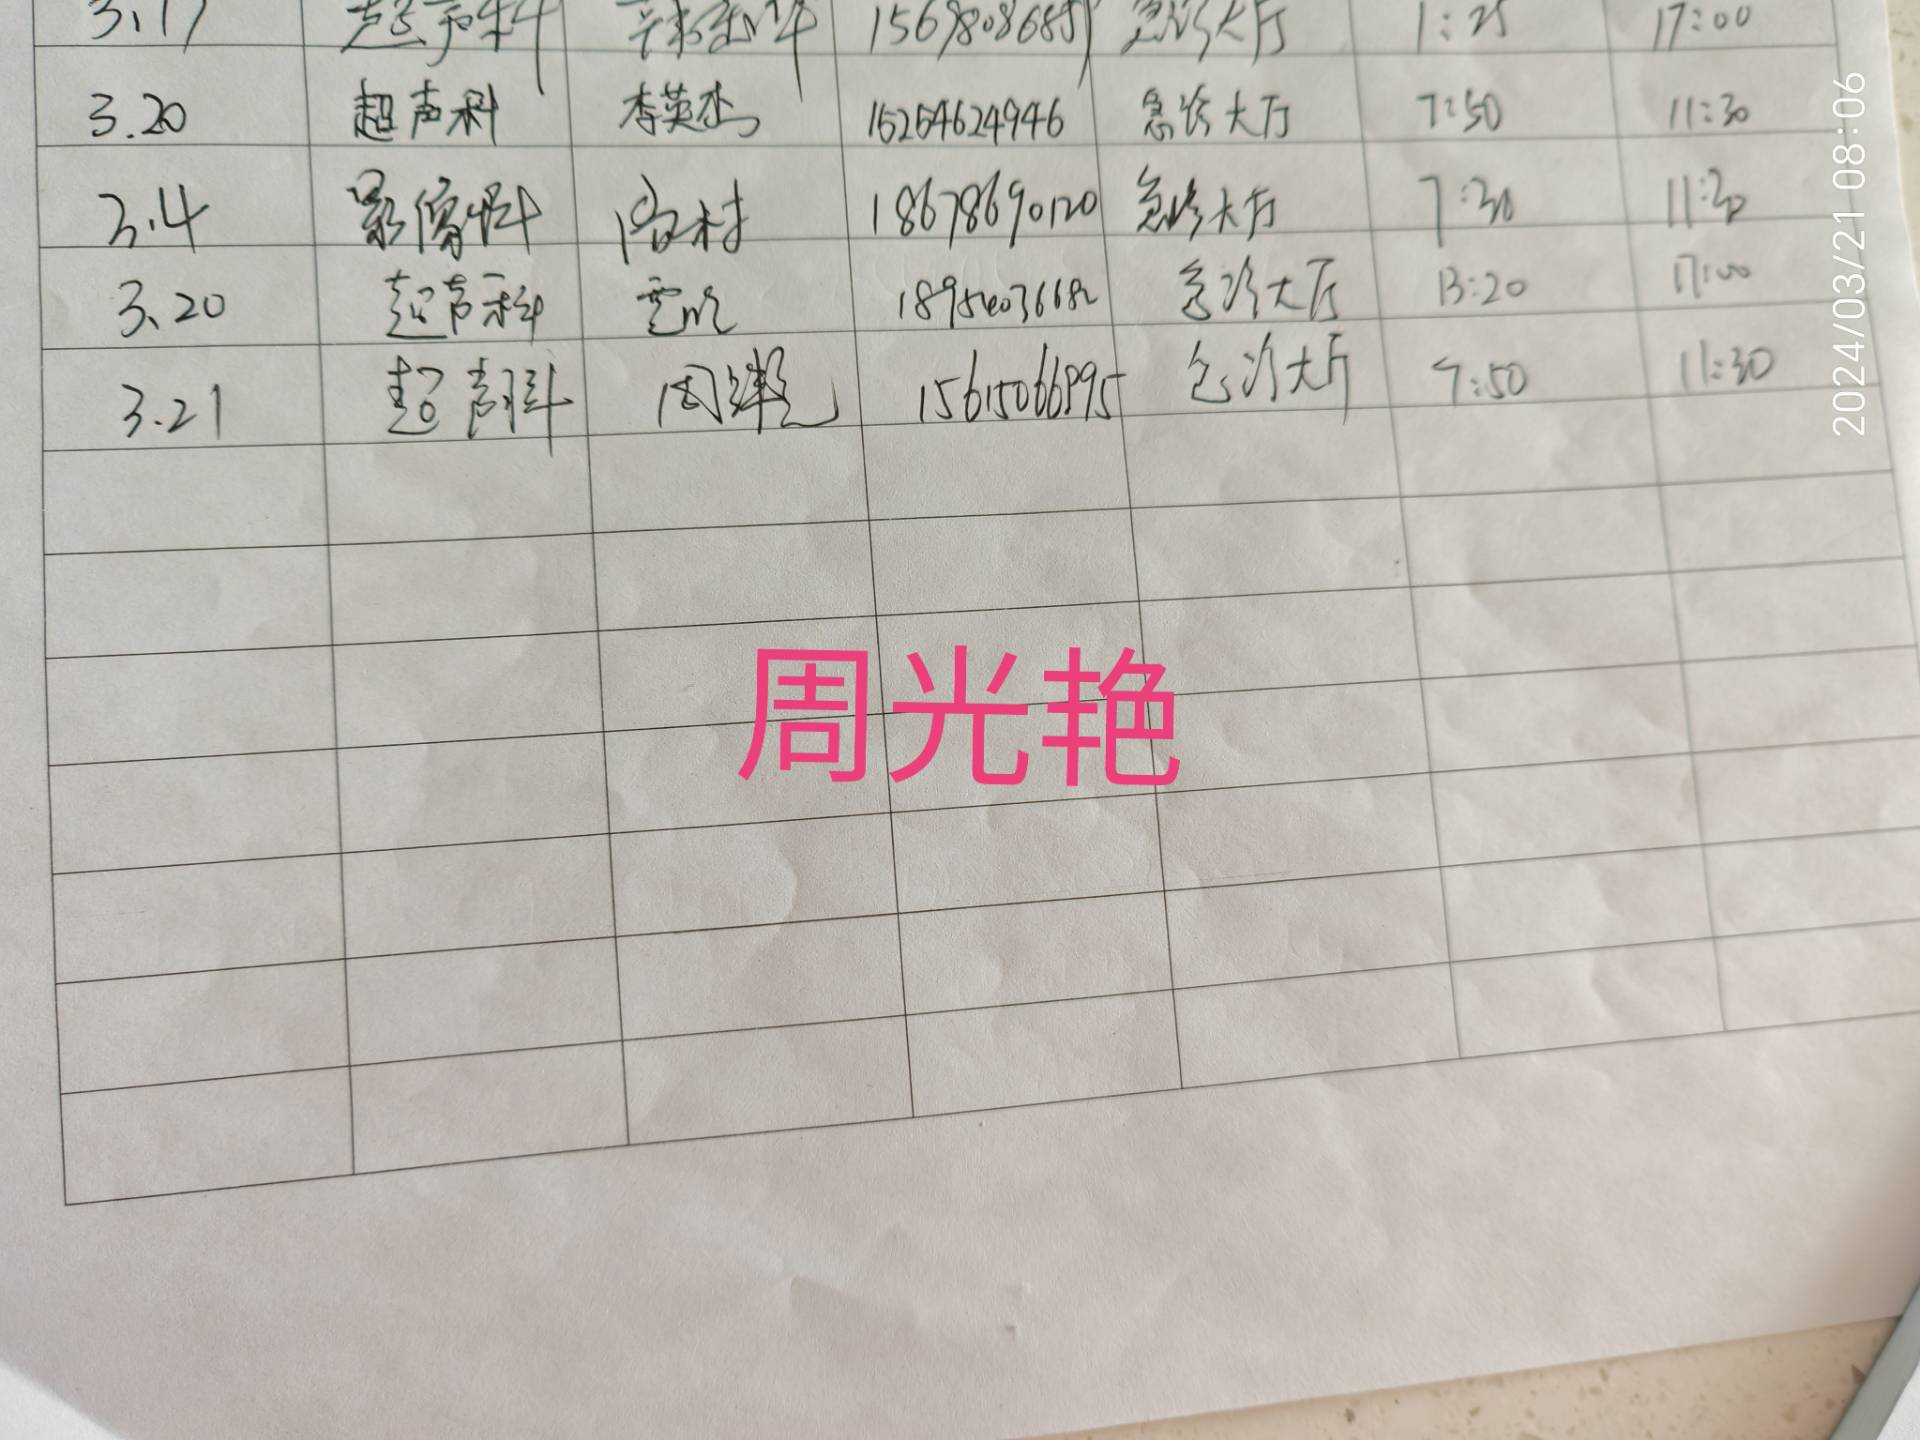 3.17 超声科 15698086851 急诊大厅 1:25 17:00
3.20 超声科 李英杰 15264624946 急诊大厅 7:50 11:30
3.4 影像科 18678690120 急诊大厅 7:30 11:30
3.20 超声科 18954036682 急诊大厅 13:20 17:00
3.21 超声科 周光艳 15615066895 急诊大厅 7:50 11:30
周光艳
2024/03/21 08:06